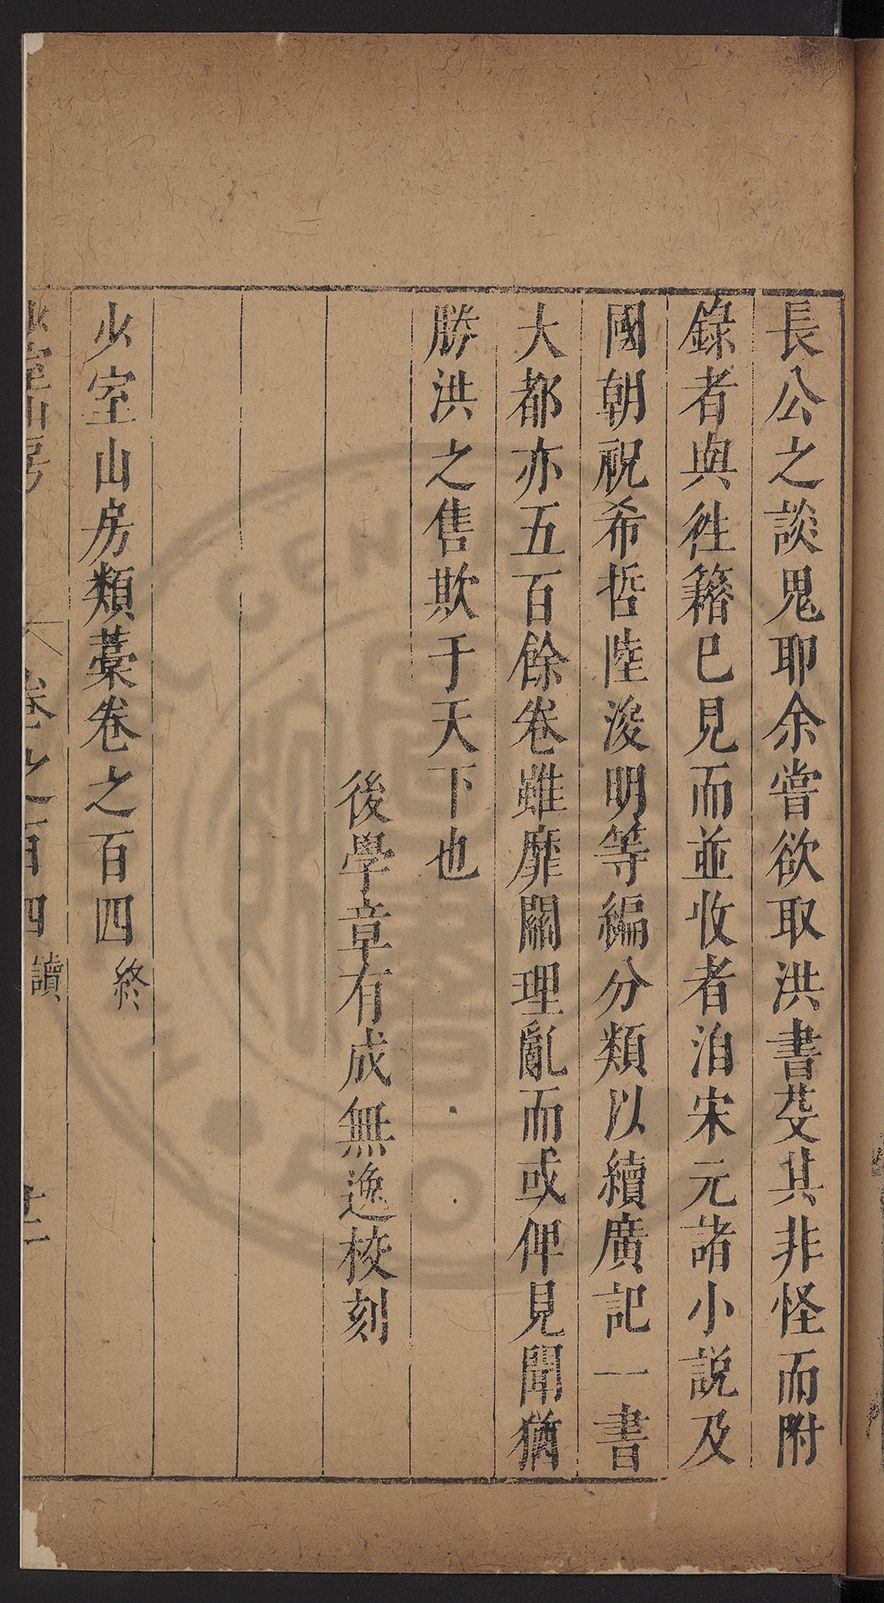 長公之談鬼耶余嘗欲取洪書芟其非怪而附
錄者與徃籍已見而並收者洎宋元諸小説及
國朝祝希哲陸浚明等編分類以續廣記一書
大都亦五百餘卷雖靡關理亂而或俾見聞猶
勝洪之售欺于天下也
後學章有成無逸校刻
少室山房類藁卷之百四終
少室山房 卷之百四 讀 廿二